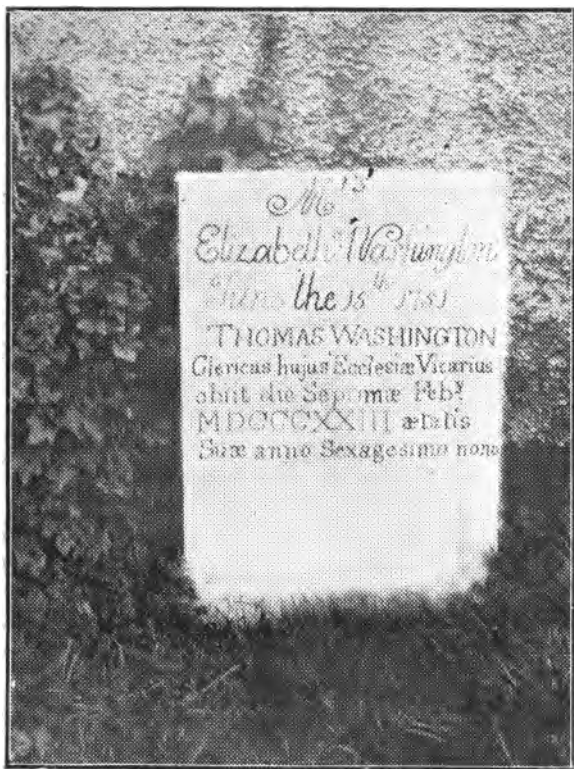 Mrs
Elizabeth Washington
June the 15th 1751
THOMAS WASHINGTON
Clericus hujus Ecclesiæ Vicarius
obiit die Septimæ Feb.y
MDCCCXXIII ætatis
Suæ anno Sexagesimo nono